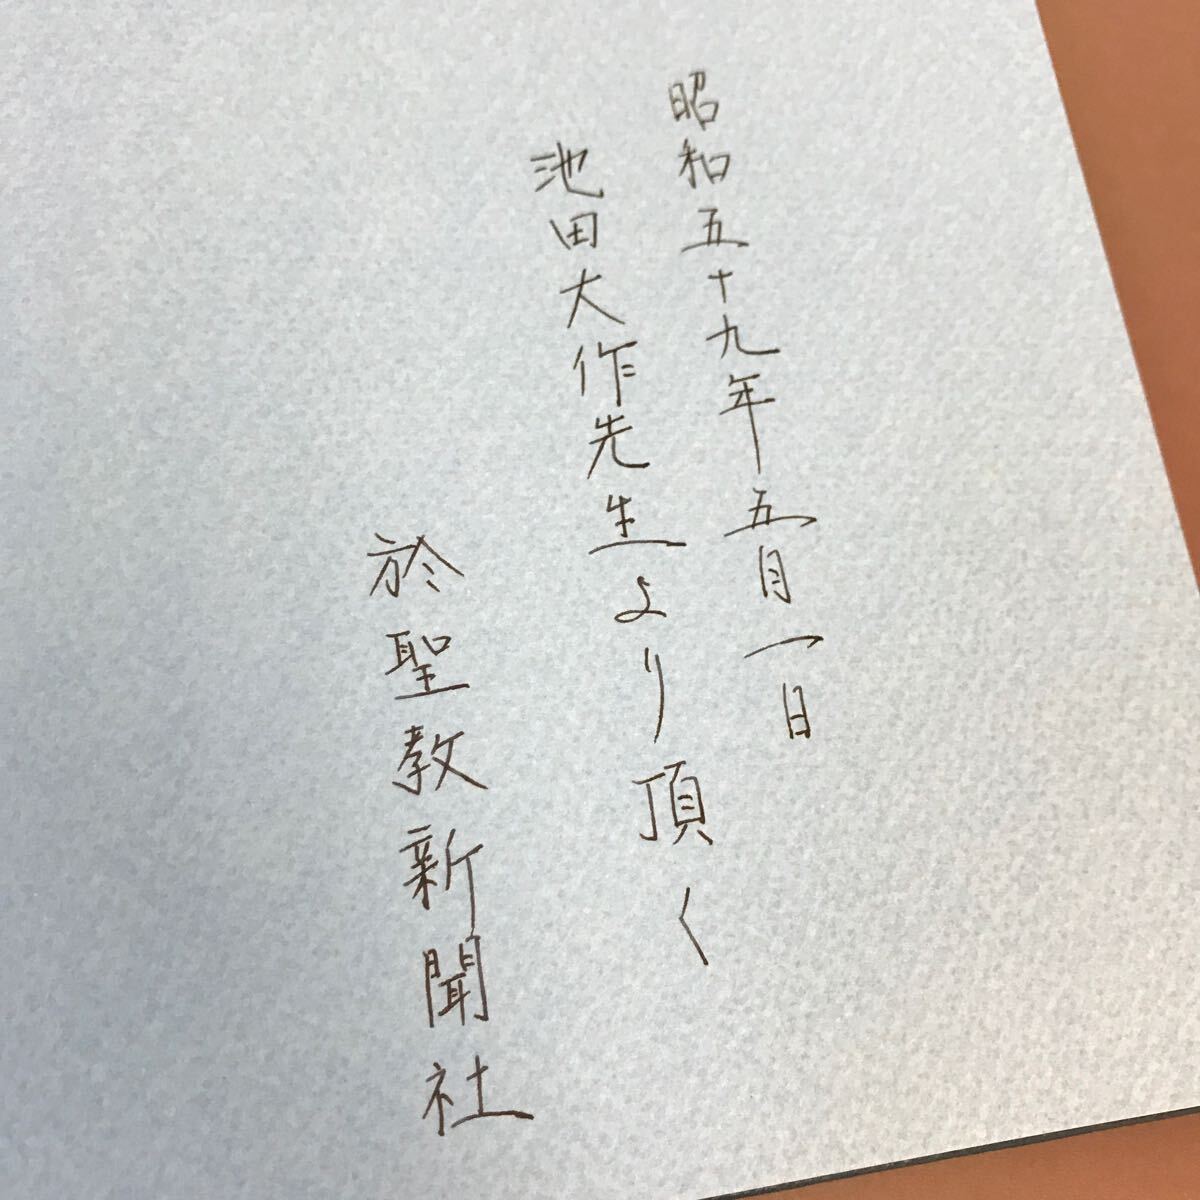 昭和五十九年五月一日
池田大作先生より頂く
於聖教新聞社